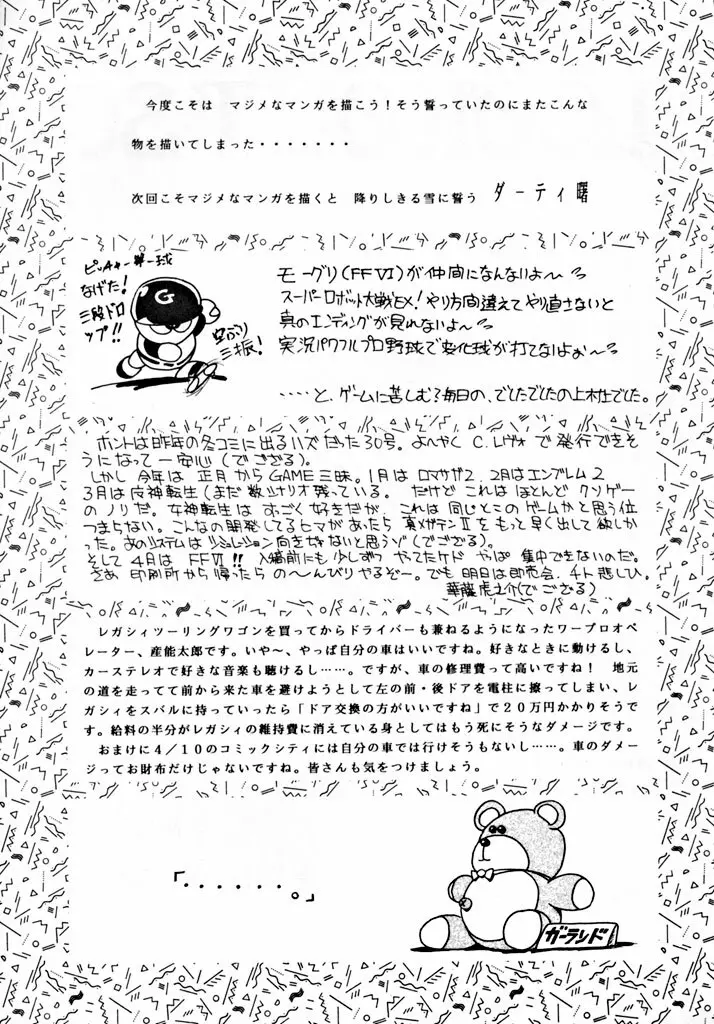 今度こそは マジメなマンガを描こう！そう誓っていたのにまたこんな
物を描いてしまった・・・・・・・
次回こそマジメなマンガを描くと 降りしきる雪に誓う ダーティ曙
ピッチャー第一球
なげた！
三段ドロ
ップ!!
G
空ぶり
三振！
モーグリ(FFⅥ)が仲間になんないよ〜〜
スーパーロボット大戦EX！やり方間違えてやり直さないと
真のエンディングが見れないよ〜〜
実況パワフルプロ野球で変化球が打てないよぉ〜〜
‥‥と、ゲームに苦しむ毎日の、でしたでしたの上木仕でした。
ホントは昨年の冬コミに出るハズだった30号。よーやく C.レヴォ で発行できそ
うになって一安心(でござる)。
しかし 今年は 正月からGAME三昧。1月は ロマサガ2、2月はエンブレム2
3月は女神転生(まだ数シナリオ残っている。 だけど これは ほとんど クソゲー
のノリだ。女神転生は すごく好きだが、これは同じとこのゲームかと思う位
つまらない。こんなの開発してるヒマがあったら 真メガテンⅡを もっと早く出して欲しか
った。あのシステムは シミュレーション向きぢゃないと思うゾ(でござる)。
そして 4月は FFⅥ!! 入稿前にも少しずつ やってたケド やっぱ 集中できないのだ。
さあ 印刷所から帰ったら の〜んびりやるぞー。でも 明日は即売会、チト 悲しひ。
華龍虎之介(でござる)
レガシィツーリングワゴンを買ってからドライバーも兼ねるようになったワープロオペ
レーター、産能太郎です。いや〜、やっぱ自分の車はいいですね。好きなときに動けるし、
カーステレオで好きな音楽も聴けるし……。ですが、車の修理費って高いですね！ 地元
の道を走ってて前から来た車を避けようとして左の前・後ドアを電柱に擦ってしまい、レ
ガシィをスバルに持っていったら「ドア交換の方がいいですね」で２０万円かかりそうで
す。給料の半分がレガシィの維持費に消えている身としてはもう死にそうなダメージです。
おまけに４／１０のコミックシティには自分の車では行けそうもないし……。車のダメー
ジってお財布だけじゃないですね。皆さんも気をつけましょう。
「・・・・・・。」
ガーランド